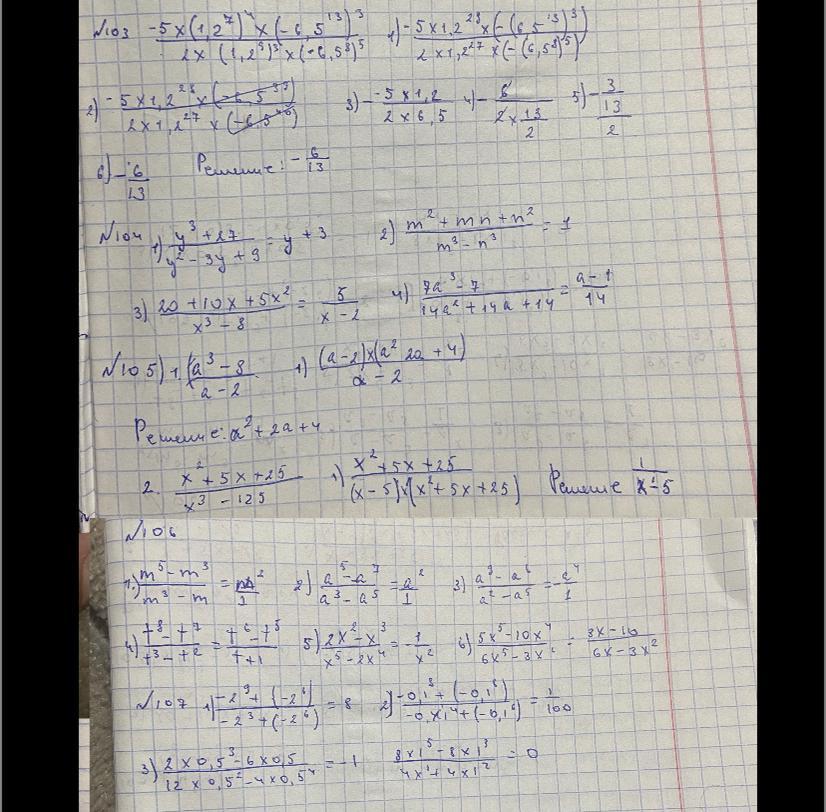 №103 (-5×(1,2⁷)⁴×(-6,5¹³)³)/(2×(1,2⁹)³×(-6,5⁸)⁵) 1) (-5×1,2²⁸×(-(6,5¹³)³)/(2×1,2²⁷×(-(6,5⁸)⁵)
2) (-5×1,2²⁸×(-6,5³⁹))/(2×1,2²⁷×(-6,5⁴⁰)) 3) -(-5×1,2)/(2×6,5) 4) -6/(2×13/2) 5) -3/(13/2)
6) -6/13 Решение: -6/13
№104 1) (y³+27)/(y²-3y+9) = y+3 2) (m²+mn+n²)/(m³-n³) = 1
3) (20+10x+5x²)/(x³-8) = 5/(x-2) 4) (7a³-7)/(14a²+14a+14) = (a-1)/14
№105) 1. (a³-8)/(a-2) 1) ((a-2)×(a² 2a+4))/(a-2)
Решение: a²+2a+4
2. (x²+5x+25)/(x³-125) 1) (x²+5x+25)/((x-5)×(x²+5x+25)) Решение 1/(x-5)
№106
1.) (m⁵-m³)/(m³-m) = m²/1 2) (a⁵-a⁷)/(a³-a⁵) = a²/1 3) (a⁹-a⁶)/(a²-a⁵) = -a⁴/1
4) (t⁸-t⁷)/(t³-t²) = (t⁶-t⁵)/(t+1) 5) (2x²-x³)/(x⁵-2x⁴) = -1/x² 6) (5x⁵-10x⁴)/(6x⁵-3x⁶) = (3x-10)/(6x-3x²)
№107 1) (-2⁹+(-2⁶))/(-2³+(-2⁶)) = 8 2) (-0,1⁸+(-0,1⁶))/(-0,1⁴+(-0,1⁶)) = 1/100
3) (2×0,5³-6×0,5)/(12×0,5²-4×0,5⁴) = -1 (8×1⁵-8×1³)/(4×1+4×1²) = 0